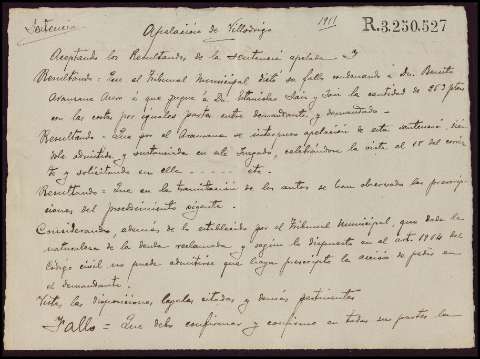 Sentencia 1911 R.3.250.527
Apelación de Villodrigo
Aceptando los Resultandos de la sentencia apelada y
Resultando = Que el Tribunal Municipal dictó su fallo condenando á Dn. Benito
á que pague á Dn. Estanislao Saiz y Saiz la cantidad de 263 ptas
con las costas por iguales partes entre demandante y demandado.
Resultando = Que por el se interpuso apelación de esta sentencia, sién-
dole admitida y sustanciada en este Juzgado, celebrándose la vista el 15 del corrien-
te y solicitando en ella - - - - - etc.
Resultando = Que en la tramitación de los autos se han observado las prescrip-
ciones del procedimiento vigente.
Considerando, además de lo establecido por el Tribunal Municipal, que dada la
naturaleza de la deuda reclamada, y según lo dispuesto en el art. 1964 del
Código civil no puede admitirse que haya prescripto la acción de pedir en
el demandante.
Vistas las disposiciones legales citadas y demás pertinentes
Fallo = Que debo confirmar y confirmo en todas sus partes la